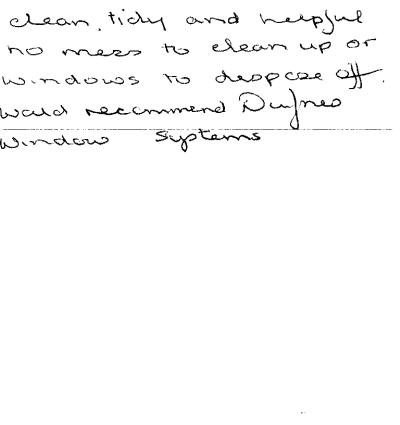 clean, tidy and helpful
no mess to clean up or
windows to dispose off.
Would recommend
Window Systems